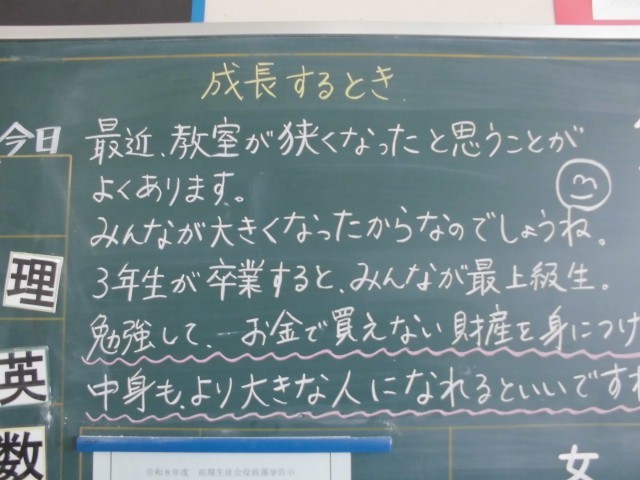 成長するとき
今日
最近、教室が狭くなったと思うことが
よくあります。
みんなが大きくなったからなのでしょうね。
3年生が卒業すると、みんなが最上級生。
勉強して、お金で買えない財産を身につけ
中身も、より大きな人になれるといいですね
理
英
数
女